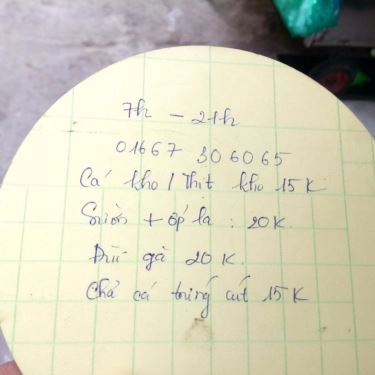 7h - 21h
01667 306065
Cá kho / Thịt kho 15K
Sườn + ốp la : 20K
Đùi gà 20K.
Chả cá trứng cút 15K